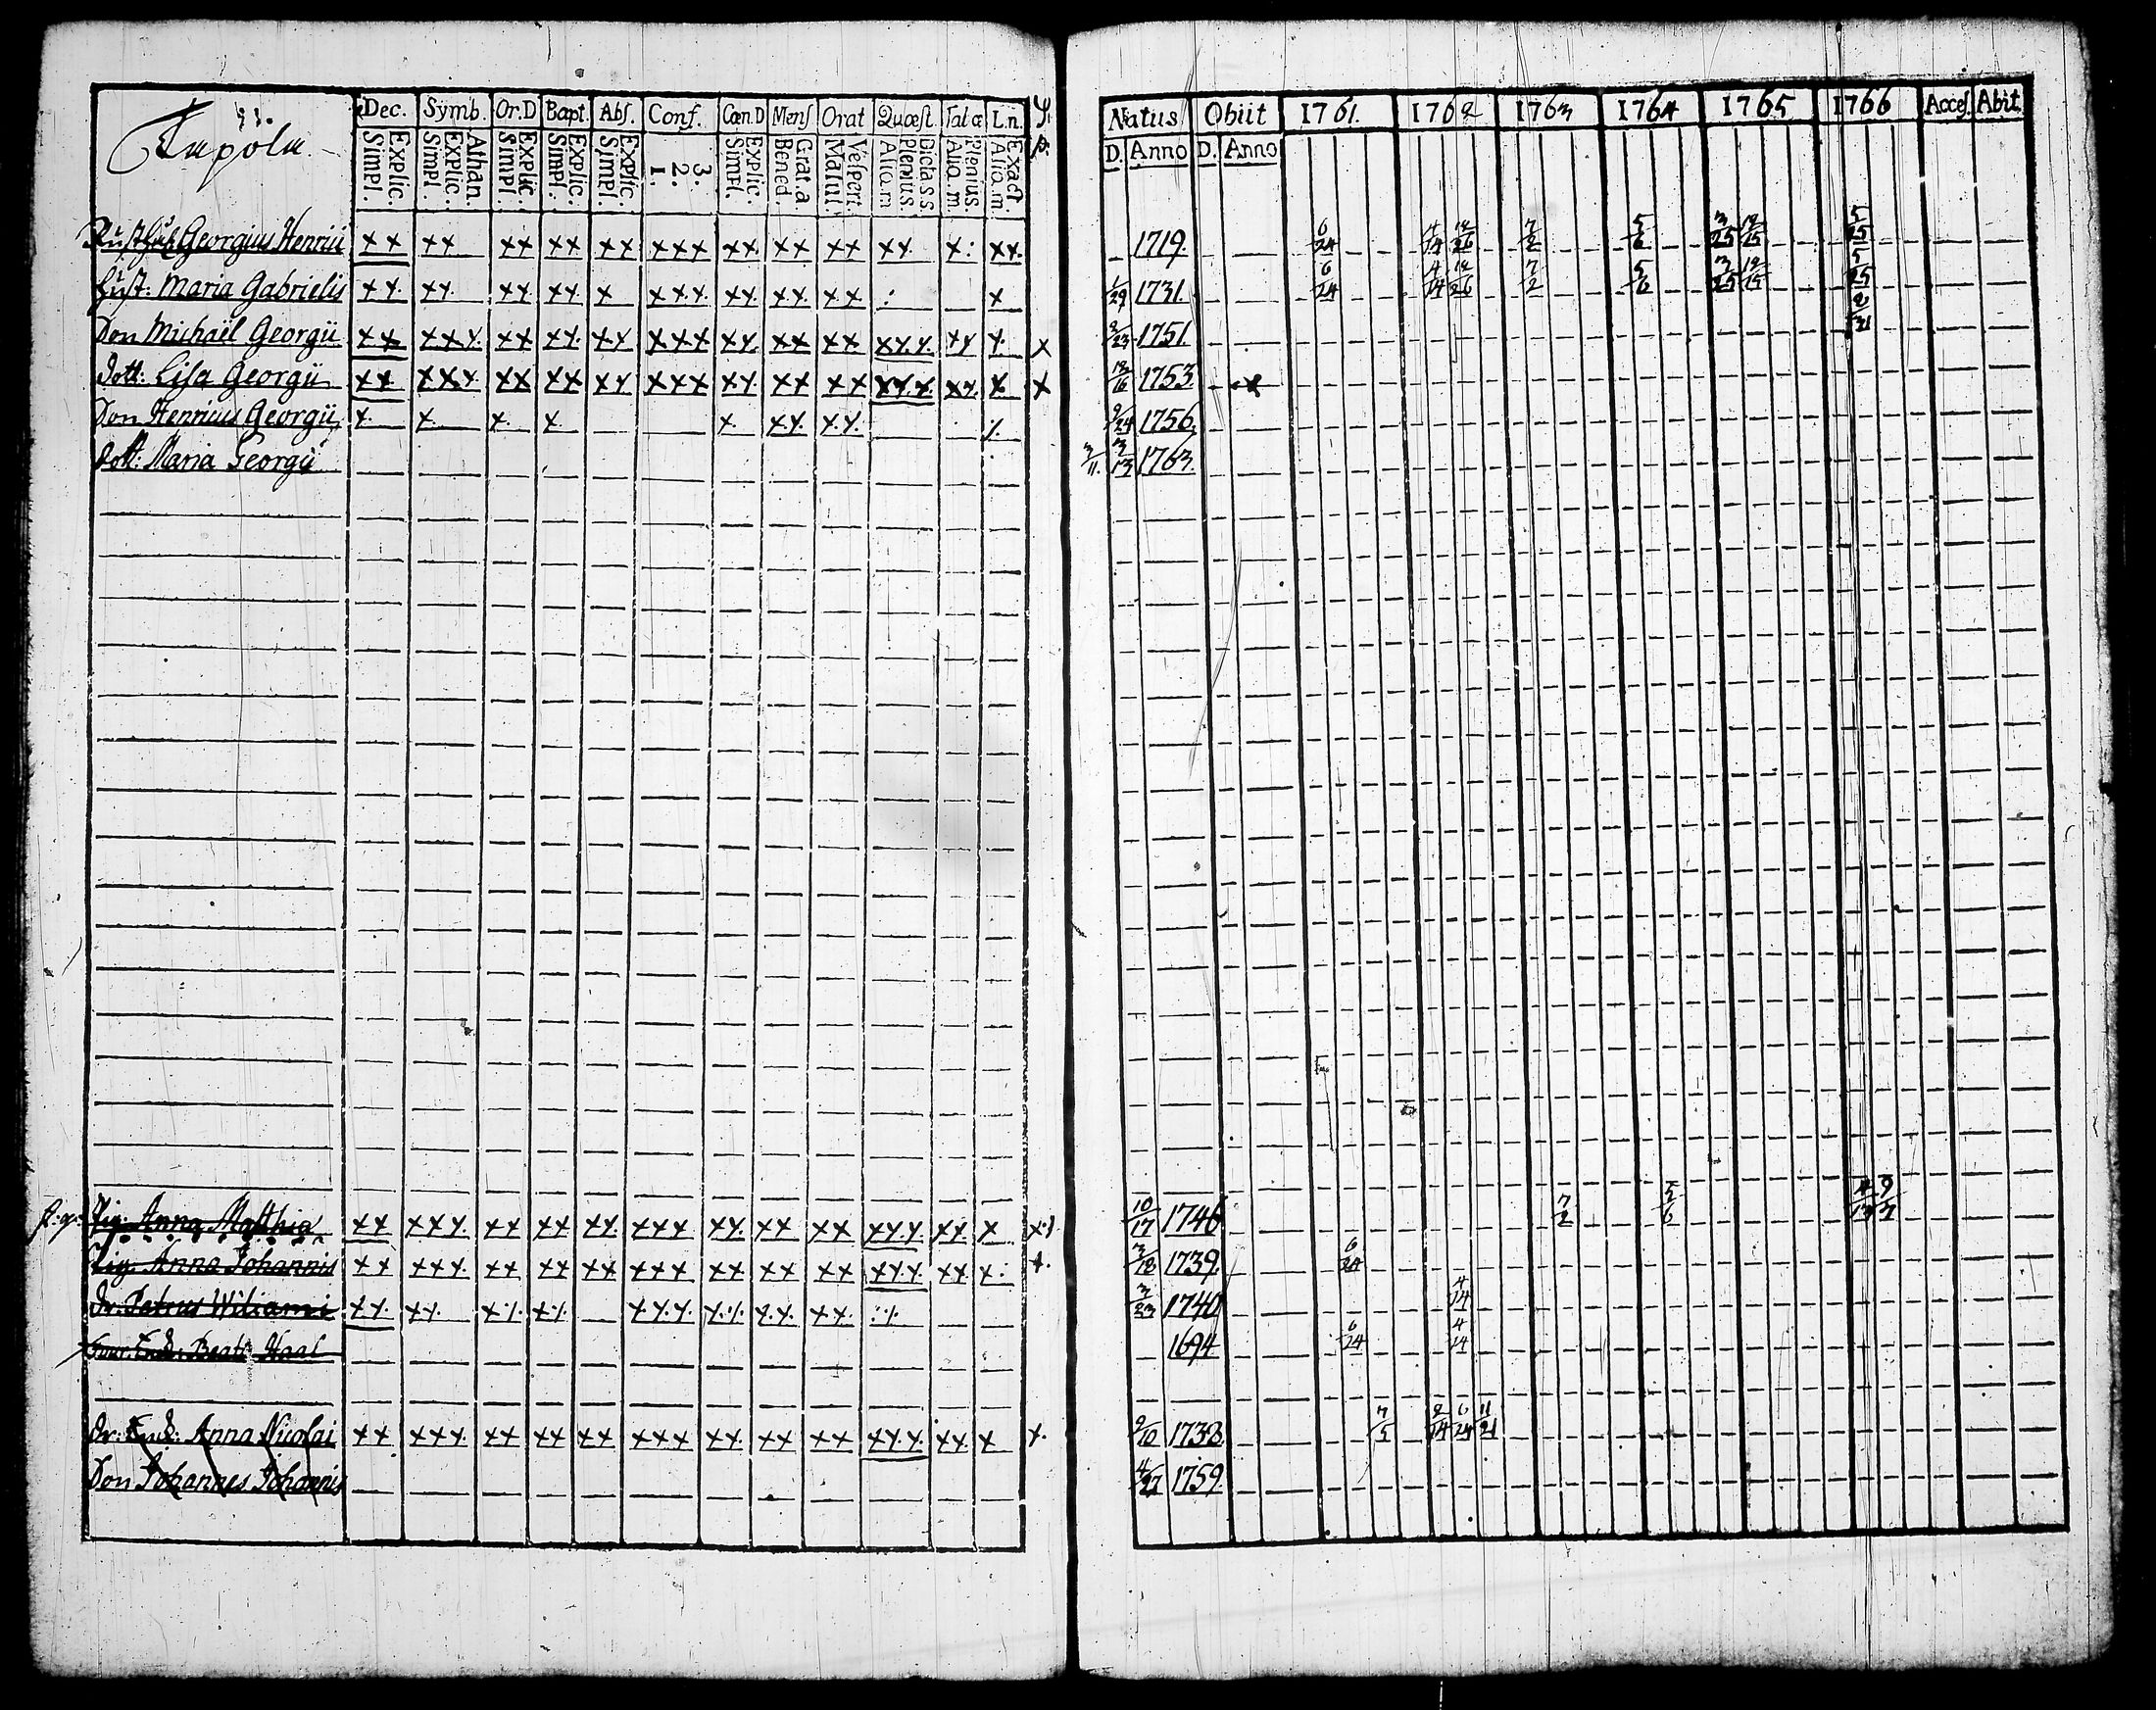 Dec. Symb. Or.D Bapt. Abſ. Conf. Cœn.D Menſ Orat Quæſt. Tal æ L.n.
Explic. Simpl. Athan. Explic. Simpl. Explic. Simpl. Explic. Simpl. Explic. Simpl. 3. 2. 1. Explic. Simpl. Grat.a Bened. Veſpert. Matut. Dicta s.s. Plenius. Alio.m Plenius. Alio.m. Exact Alio.m.
Natus Obiit 1761. 1762 1763 1764 1765 1766 Acceſ. Abiit
D. Anno D. Anno
Georgius Henrici xx xx xx xx xx xxx xx. xx xx xx x: xx. 1719. 6/24 4/14 12/26 7/2 5/6 3/25 12/15 5/25
Huſt. Maria Gabrielis xx. xx. xx xx x xxx. xx. xx. xx : x 1/29 1731. 6/24 4/14 12/26 7/2 5/6 3/25 12/15 5/25
Son Michaël Georgii xx xxx. xx xx. xx xxx xx. xx xx xx.x. xx x. x 2/23 1751.
dott. Liſa Georgii xx xxx. xx xx xx xxx xx. xx xx xx.x xx. x. x 12/16 1753. x
Son Henricus Georgii x. x x. x x. xx. x.x. x. 9/24 1756.
dott: Maria Georgii 3/11. 3/13 1763.
Pig: Anna Matthiæ xx xxx. xx xx xx. xxx xx. xx xx xx.x. xx. x 10/17 1746 7/2 5/6
Pig. Anna Johannis xx xxx. xx xx xx xxx xx. xx xx xx.x. xx. x: x. 3/18 1739. 6/24
dr. Petrus Wiliami 3/23 1740. 4/14
Beat. Staal 1694 6/24 4/14
dr: Enck: Anna Nicolai xx xxx. xx xx xx xxx xx. xx xx xx.x. xx. x x. 9/10 1738. 7/5 6/24 11/21
Son Johannes Johannis 4/27 1759.